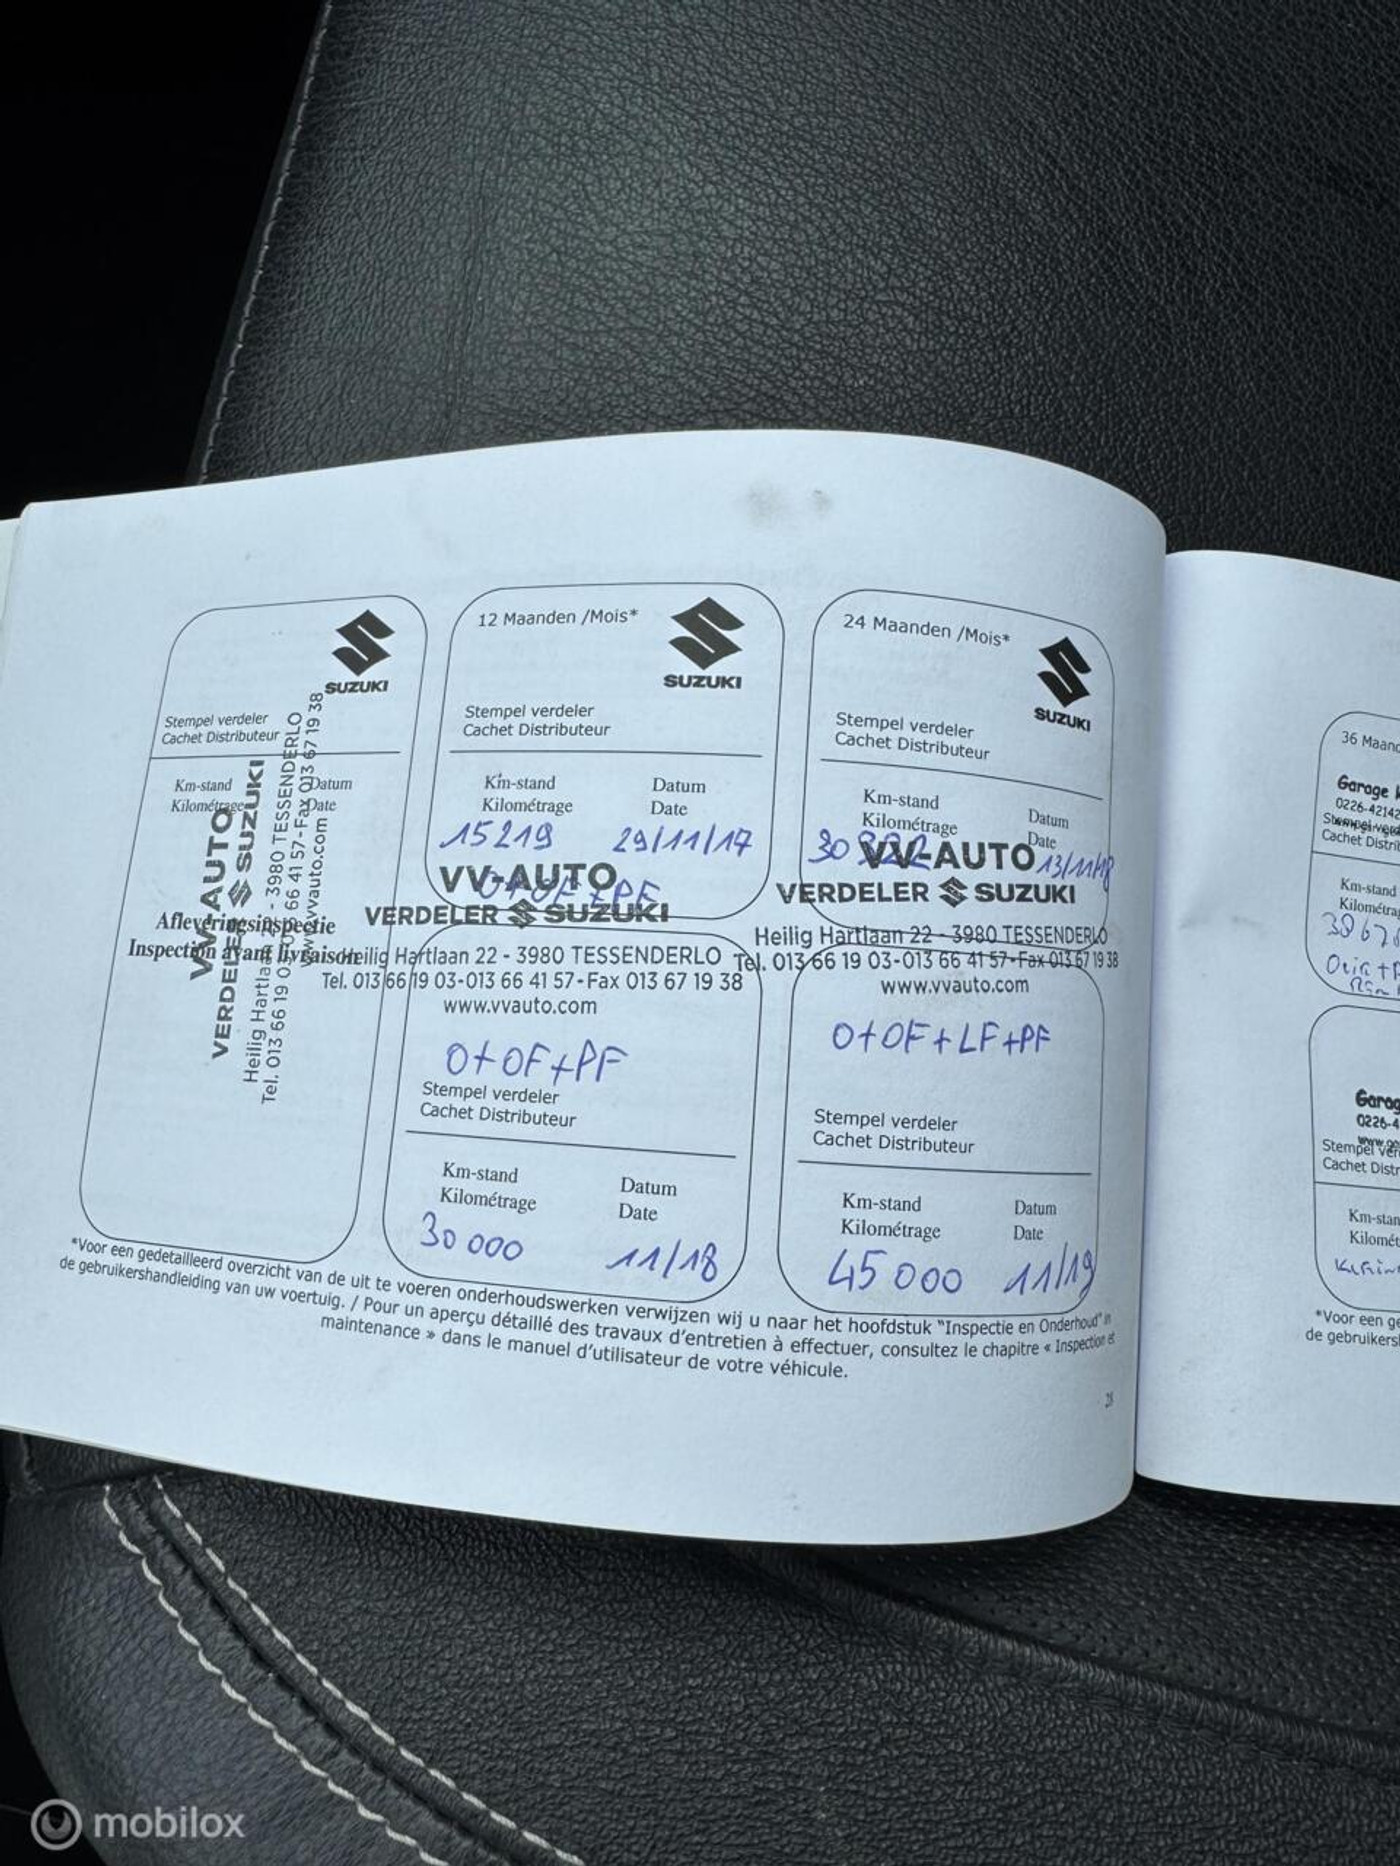 SUZUKI
Stempel verdeler
Cachet Distributeur
Km-stand Datum
Kilométrage Date
VV-AUTO
VERDELER SUZUKI
Heilig Hartlaan 22 - 3980 TESSENDERLO
Tel. 013 66 19 03-013 66 41 57-Fax 013 67 19 38
www.vvauto.com
Afleveringsinspectie
Inspection avant livraison
12 Maanden /Mois*
SUZUKI
Stempel verdeler
Cachet Distributeur
Km-stand Datum
Kilométrage Date
15219 29/11/17
O+OF+PF
VV-AUTO
VERDELER SUZUKI
Heilig Hartlaan 22 - 3980 TESSENDERLO
Tel. 013 66 19 03-013 66 41 57-Fax 013 67 19 38
www.vvauto.com
O+OF+PF
Stempel verdeler
Cachet Distributeur
Km-stand Datum
Kilométrage Date
30 000 11/18
24 Maanden /Mois*
SUZUKI
Stempel verdeler
Cachet Distributeur
Km-stand Datum
Kilométrage Date
13/11/18
VV-AUTO
VERDELER SUZUKI
Heilig Hartlaan 22 - 3980 TESSENDERLO
Tel. 013 66 19 03-013 66 41 57-Fax 013 67 19 38
www.vvauto.com
O+OF+LF+PF
Stempel verdeler
Cachet Distributeur
Km-stand Datum
Kilométrage Date
45 000 11/19
*Voor een gedetailleerd overzicht van de uit te voeren onderhoudswerken verwijzen wij u naar het hoofdstuk "Inspectie en Onderhoud" in
de gebruikershandleiding van uw voertuig. / Pour un aperçu détaillé des travaux d'entretien à effectuer, consultez le chapitre « Inspection et
maintenance » dans le manuel d'utilisateur de votre véhicule.
36
Garage
0226-4214
Stempel
Cachet
Km-stand
0226-4
Stempel
Cachet
*Voor een
de
mobilox